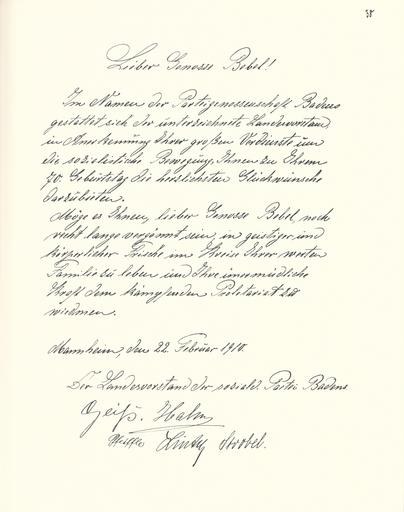 38
Lieber Genosse Bebel!
Im Namen der Parteigenossenschaft Badens
gestattet sich der unterzeichnete Landesvorstand,
in Anerkennung Ihrer großen Verdienste um
die sozialistische Bewegung, Ihnen zu Ihrem
70. Geburtstag die herzlichsten Glückwünsche
darzubieten.
Möge es Ihnen, lieber Genosse Bebel, noch
recht lange vergönnt sein, in geistiger und
körperlicher Frische im Kreise Ihrer werten
Familie zu leben und Ihre unermüdliche
Kraft dem kämpfenden Proletariat zu
widmen.
Mannheim, den 22. Februar 1910.
Der Landesvorstand der soziald. Partei Badens
Geiß. Hahn
Strobel.